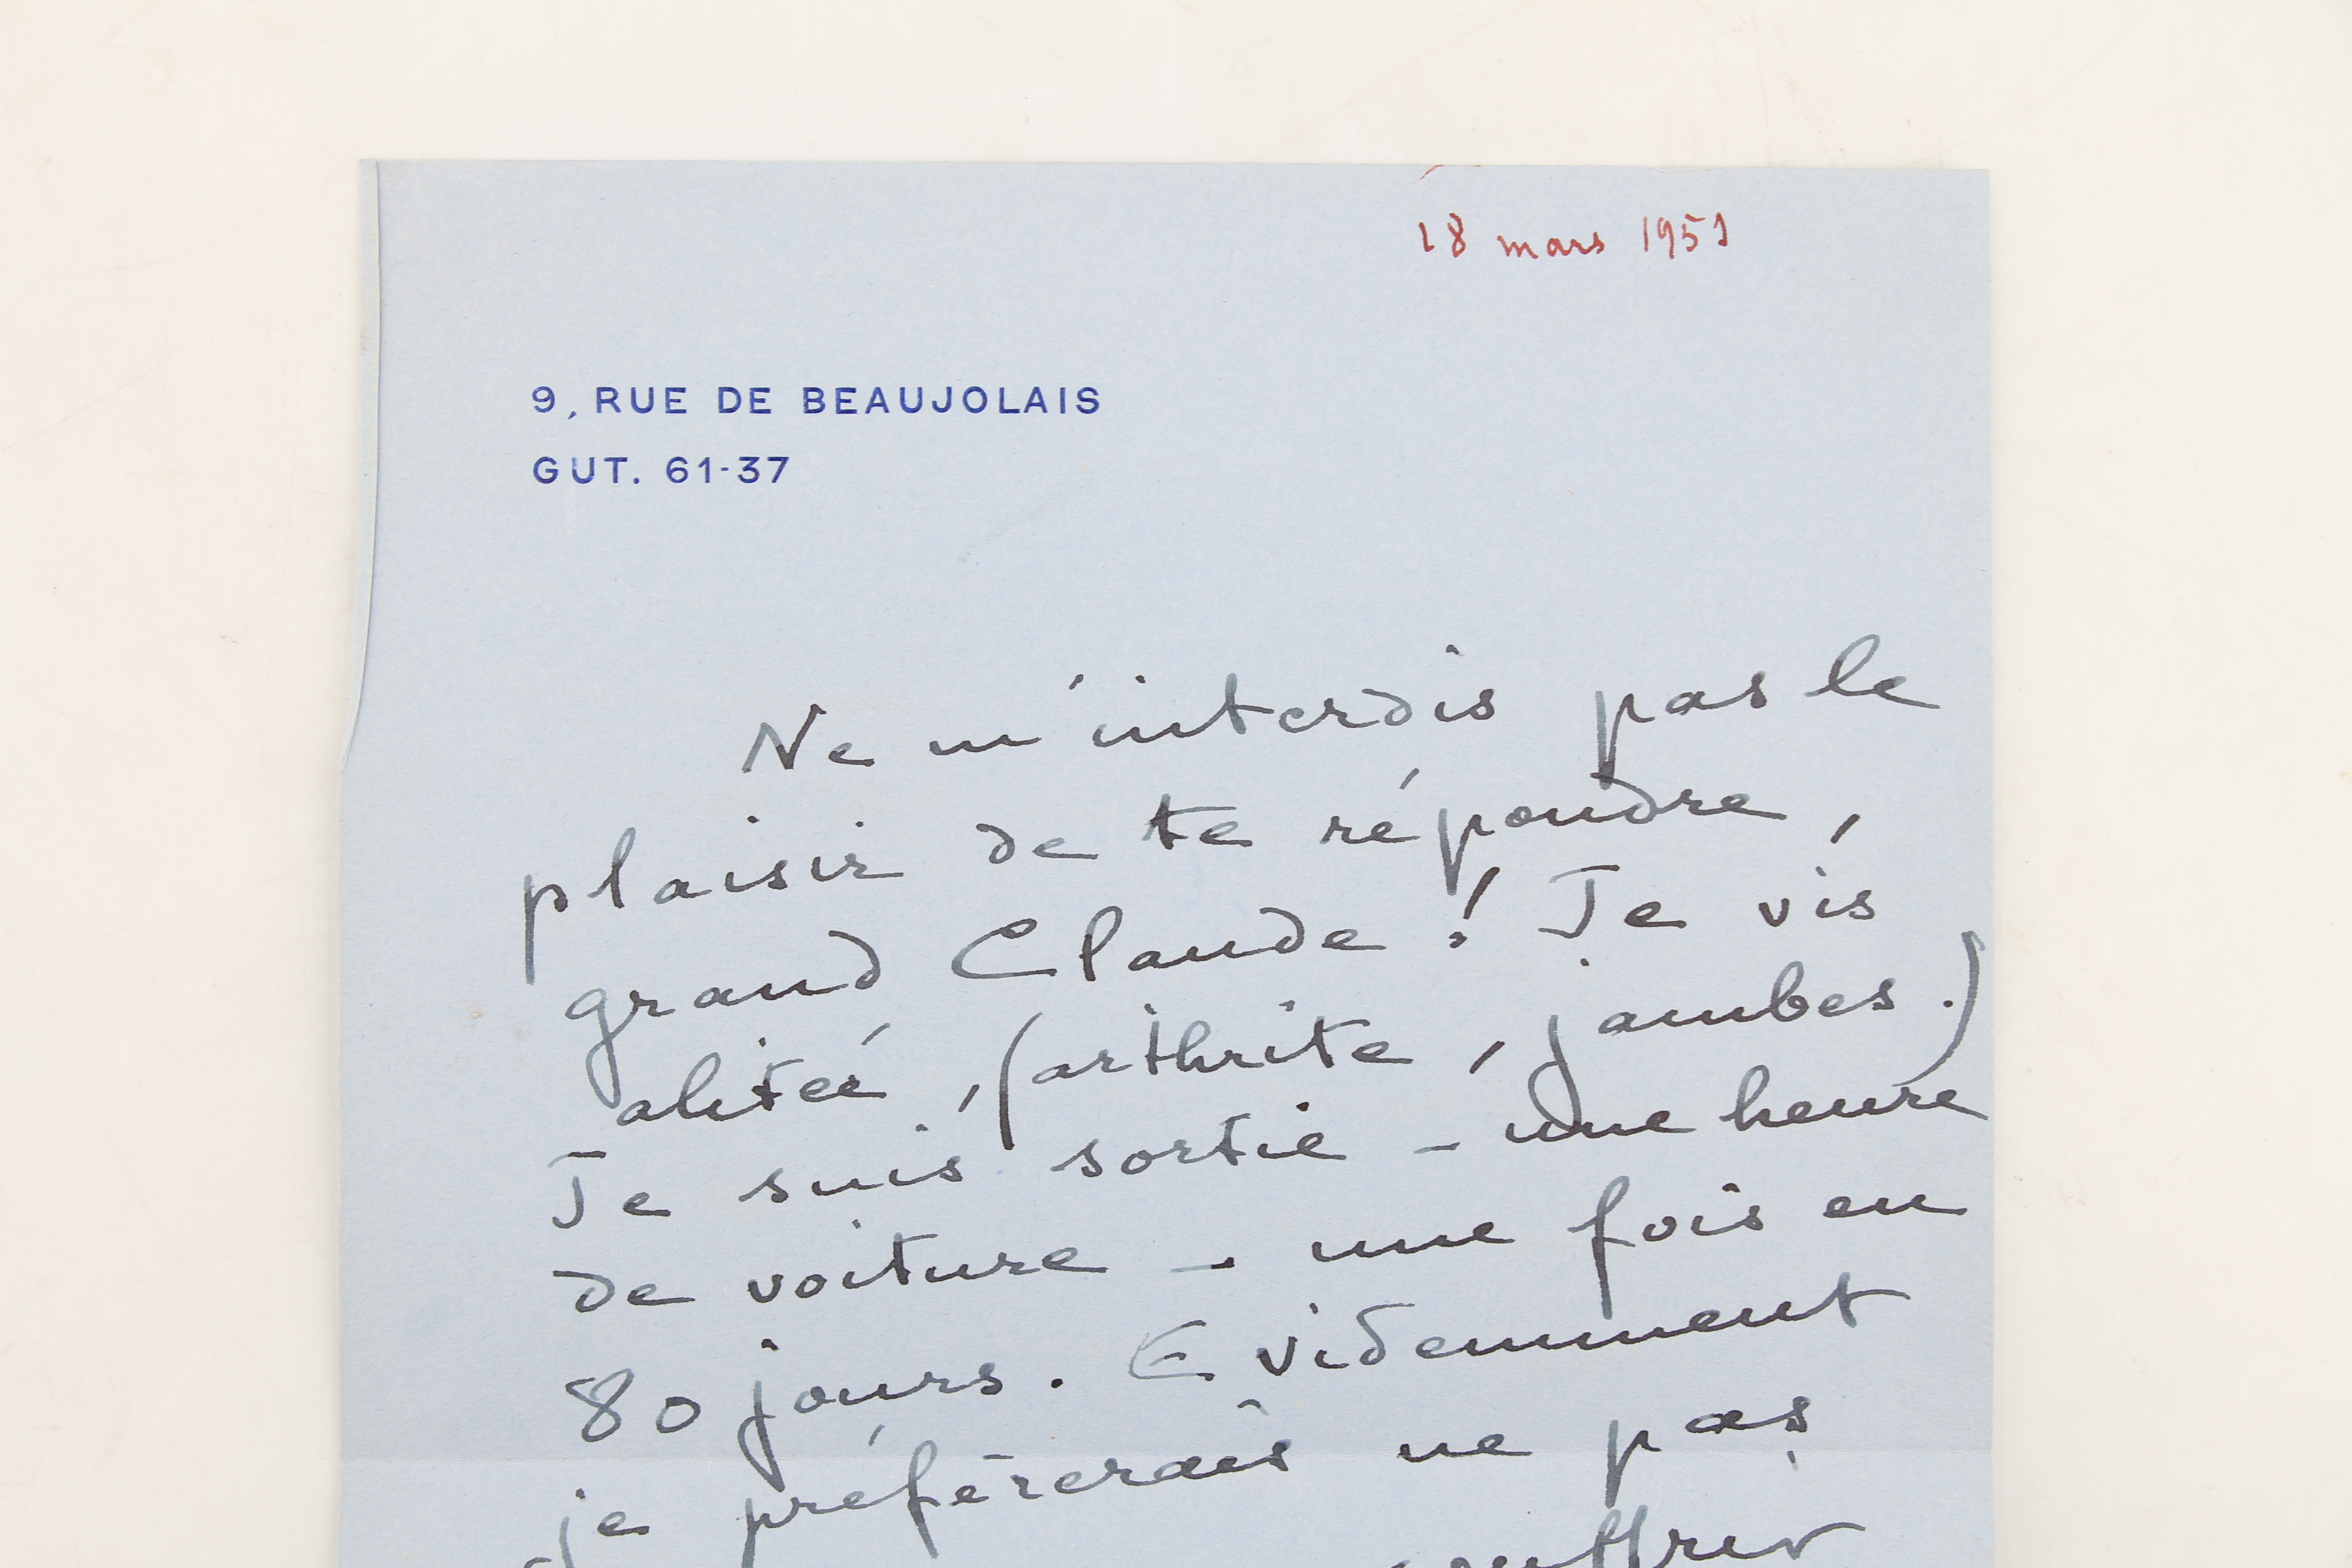 18 mars 1951
9, RUE DE BEAUJOLAIS
GUT. 61-37
Ne m'interdis pas le
plaisir de te répondre,
grand Claude ! Je vis
alitée, (arthrite, jambes.)
Je suis sortie - une heure
de voiture - une fois en
80 jours. Evidemment
je préférerais ne pas
souffrir